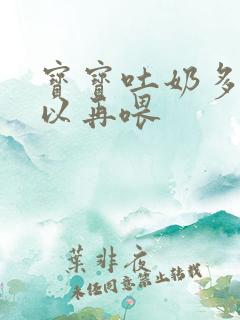 寶寶吐奶多
以再喂
葉非夜
未经同意禁止转载